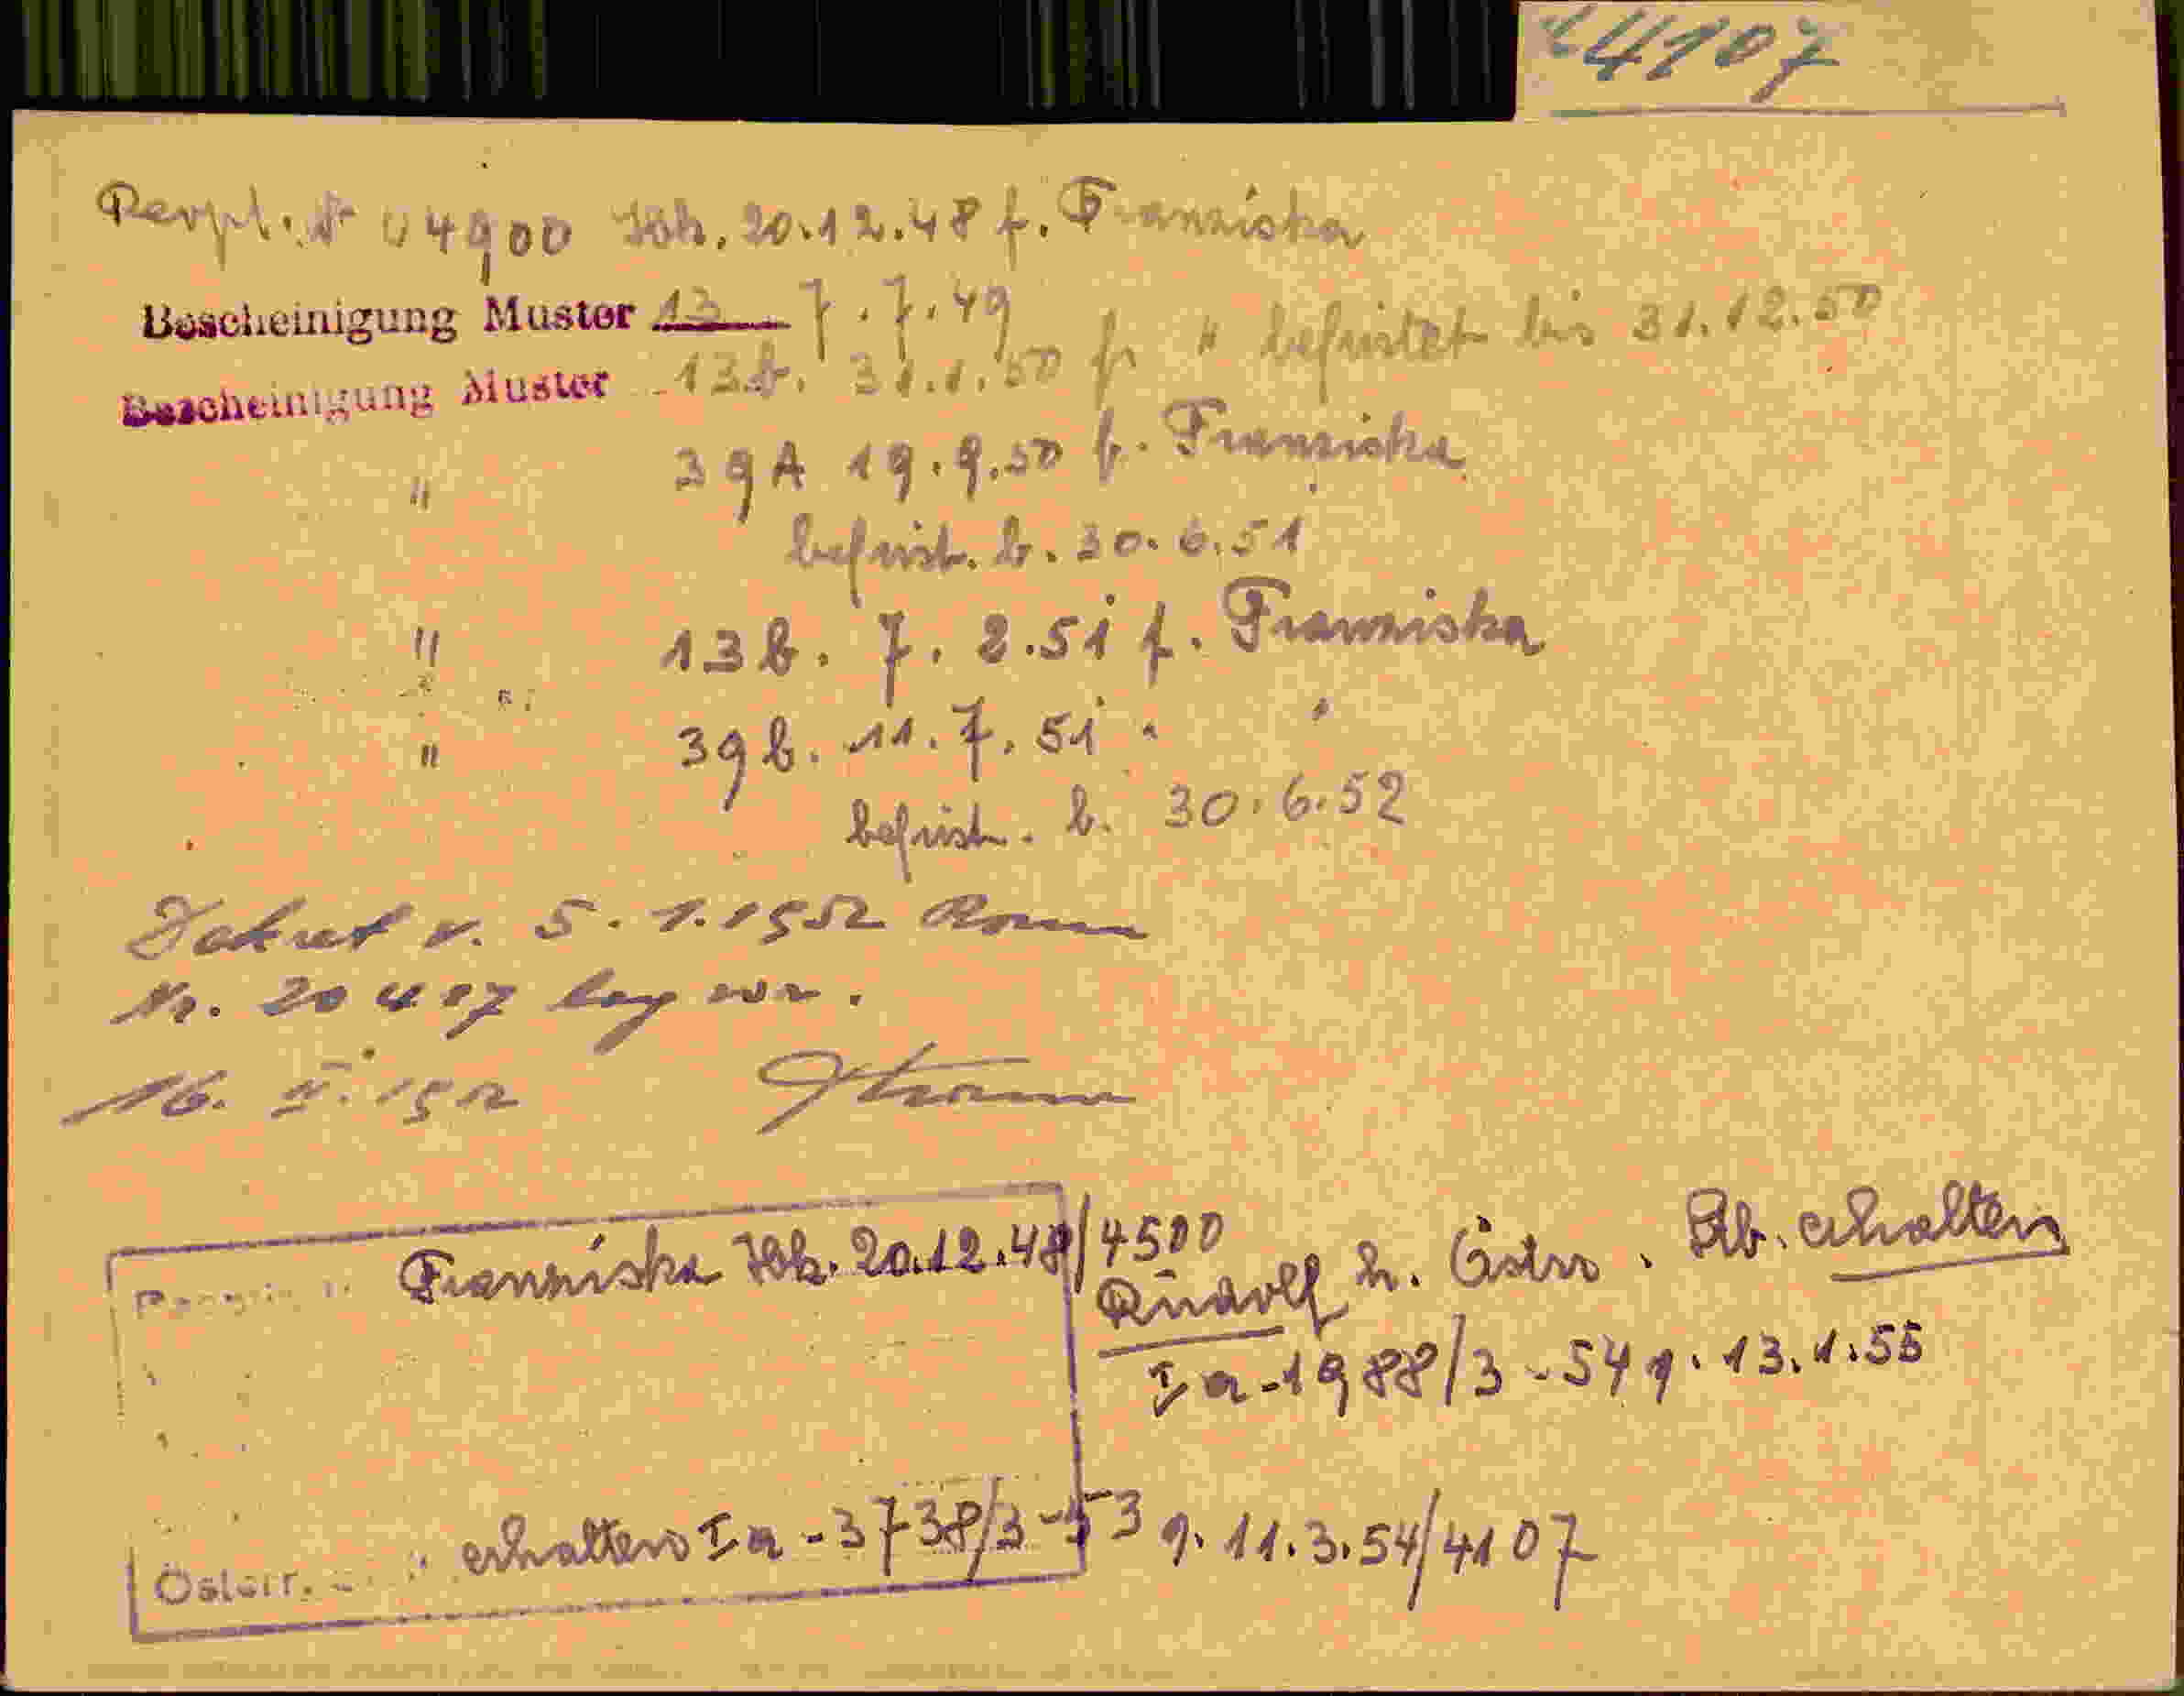 4107
04900 Ibk. 20.12.48 f. Franziska
Bescheinigung Muster 13 7.7.49
Bescheinigung Muster 13b. 31.1.50 f. " befristet bis 31.12.50
" 39A 19.9.50 f. Franziska
befrist. b. 30.6.51
" 13b. 7.2.51 f. Franziska
" 39b. 11.7.51 " "
befrist. b. 30.6.52
Dekret v. 5.1.1952
Nr. 20407 lag vor.
16. II. 1952
Franziska Ibk. 20.12.48/4500
Rudolf h. Östr. Stb. erhalten
Ia-1988/3-54 v. 13.1.55
Österr. erhalten Ia-3738/3-53 v. 11.3.54/4107